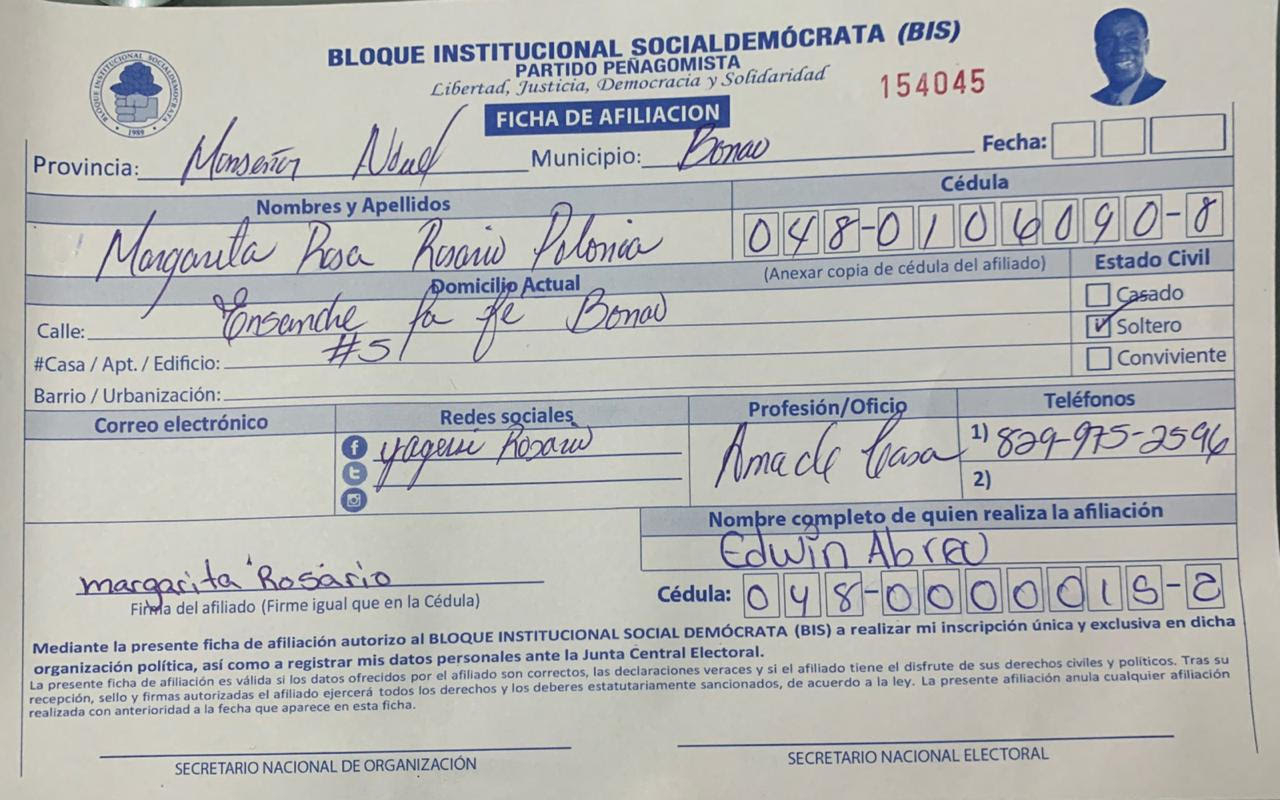 BLOQUE INSTITUCIONAL SOCIALDEMÓCRATA (BIS)
PARTIDO PEÑAGOMISTA
Libertad, Justicia, Democracia y Solidaridad
154045
BLOQUE INSTITUCIONAL SOCIALDEMOCRATA
1989
FICHA DE AFILIACION
Provincia: Monseñor Nouel Municipio: Bonao Fecha:
Nombres y Apellidos
Cédula
Margarita Rosa Rosario Polonia
048-0106090-8
(Anexar copia de cédula del afiliado)
Estado Civil
Domicilio Actual
Casado
Calle: Ensanche la fe Bonao
Soltero
#Casa / Apt. / Edificio: #51
Conviviente
Barrio / Urbanización:
Correo electrónico
Redes sociales
Profesión/Oficio
Teléfonos
Rosario
Ama de Casa
1) 829-975-2596
2)
Nombre completo de quien realiza la afiliación
Edwin Abreu
margarita Rosario
Firma del afiliado (Firme igual que en la Cédula)
Cédula: 048-0000015-2
Mediante la presente ficha de afiliación autorizo al BLOQUE INSTITUCIONAL SOCIAL DEMÓCRATA (BIS) a realizar mi inscripción única y exclusiva en dicha
organización política, así como a registrar mis datos personales ante la Junta Central Electoral.
La presente ficha de afiliación es válida si los datos ofrecidos por el afiliado son correctos, las declaraciones veraces y si el afiliado tiene el disfrute de sus derechos civiles y políticos. Tras su
recepción, sello y firmas autorizadas el afiliado ejercerá todos los derechos y los deberes estatutariamente sancionados, de acuerdo a la ley. La presente afiliación anula cualquier afiliación
realizada con anterioridad a la fecha que aparece en esta ficha.
SECRETARIO NACIONAL DE ORGANIZACIÓN
SECRETARIO NACIONAL ELECTORAL